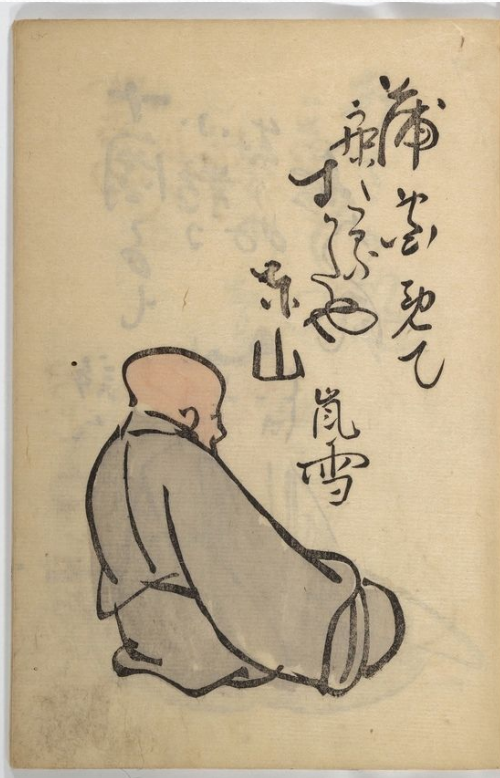 蒲団着て
寐たるすがたや
東山
嵐雪